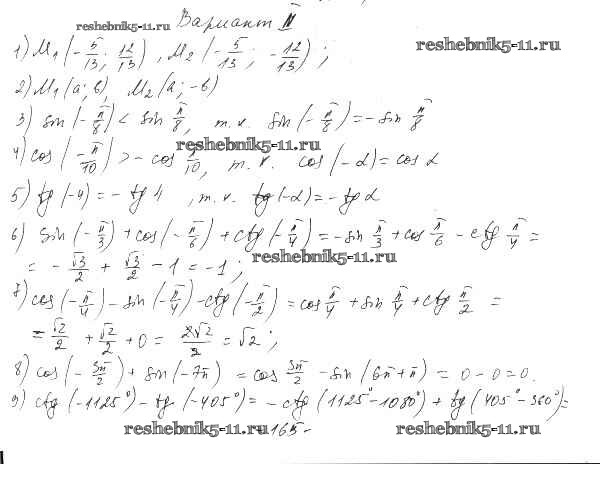 Вариант II
reshebnik5-11.ru
1) M₁(-5/13; 12/13), M₂(-5/13; -12/13);
reshebnik5-11.ru
2) M₁(a; b), M₂(a; -b)
3) sin(-π/8) < sin π/8, т.к. sin(-π/8) = -sin π/8
reshebnik5-11.ru
4) cos(-π/10) > -cos π/10, т.к. cos(-α) = cos α
5) tg(-4) = -tg 4, т.к. tg(-α) = -tg α
6) sin(-π/3) + cos(-π/6) + ctg(-π/4) = -sin π/3 + cos π/6 - ctg π/4 =
= -√3/2 + √3/2 - 1 = -1;
reshebnik5-11.ru
7) cos(-π/4) - sin(-π/4) - ctg(-π/2) = cos π/4 + sin π/4 + ctg π/2 =
= √2/2 + √2/2 + 0 = 2√2/2 = √2;
8) cos(-3π/2) + sin(-7π) = cos 3π/2 - sin(6π+π) = 0 - 0 = 0.
9) ctg(-1125°) - tg(-405°) = -ctg(1125°-1080°) + tg(405°-360°) =
reshebnik5-11.ru
-165-
reshebnik5-11.ru